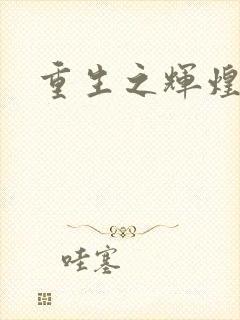 重生之辉煌
哇塞